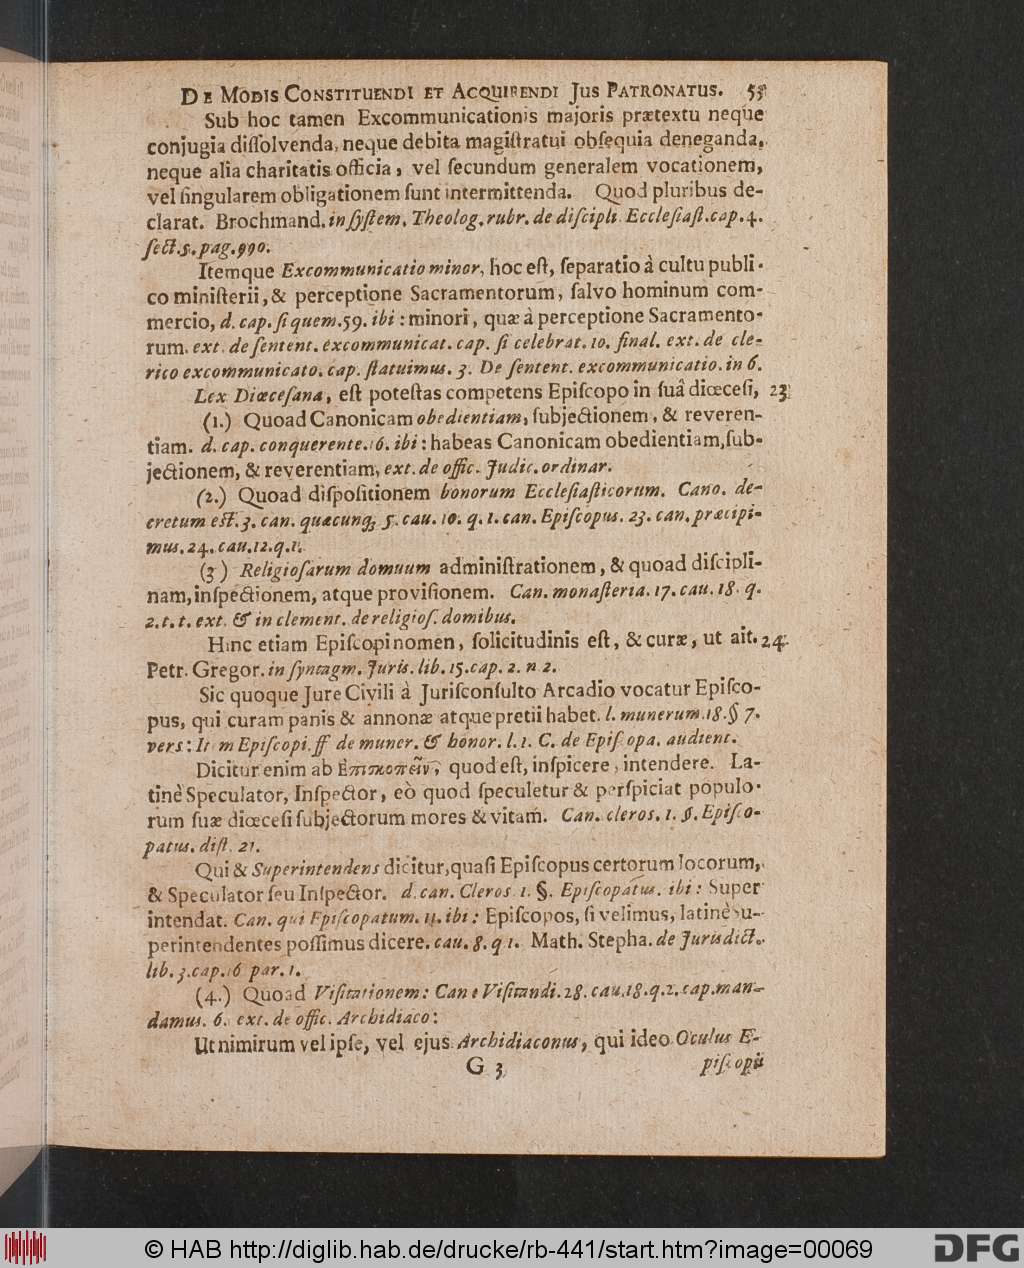 DE MODIS CONSTITUENDI ET ACQUIRENDI JUS PATRONATUS. 53
Sub hoc tamen Excommunicationis majoris prætextu neque
conjugia diſſolvenda, neque debita magiſtratui obſequia deneganda,
neque alia charitatis officia, vel ſecundum generalem vocationem,
vel ſingularem obligationem ſunt intermittenda. Quod pluribus de-
clarat. Brochmand. in ſyſtem. Theolog. rubr. de diſcipli. Eccleſiaſt. cap. 4.
ſect. 5. pag. 990.
Itemque Excommunicatio minor, hoc eſt, ſeparatio à cultu publi-
co miniſterii, & perceptione Sacramentorum, ſalvo hominum com-
mercio, d. cap. ſi quem. 59. ibi: minori, quæ à perceptione Sacramento-
rum. ext. de ſentent. excommunicat. cap. ſi celebrat. 10. final. ext. de cle-
rico excommunicato. cap. ſtatuimus. 3. De ſentent. excommunicatio. in 6.
Lex Diœceſana, eſt poteſtas competens Epiſcopo in ſuâ diœceſi, 23
(1.) Quoad Canonicam obedientiam, ſubjectionem, & reveren-
tiam. d. cap. conquerente. 16. ibi: habeas Canonicam obedientiam, ſub-
jectionem, & reverentiam, ext. de offic. Judic. ordinar.
(2.) Quoad diſpoſitionem bonorum Eccleſiaſticorum. Cano. de-
cretum eſt. 3. can. quæcunq; 5. cau. 10. q. 1. can. Epiſcopus. 23. can. præcipi-
mus. 24. cau. 12. q. 1.
(3) Religioſarum domuum adminiſtrationem, & quoad diſcipli-
nam, inſpectionem, atque proviſionem. Can. monaſteria. 17. cau. 18. q.
2. t. t. ext. & in clement. de religioſ. domibus.
Hinc etiam Epiſcopi nomen, ſolicitudinis eſt, & curæ, ut ait. 24.
Petr. Gregor. in ſyntagm. Juris. lib. 15. cap. 2. n 2.
Sic quoque Jure Civili à Juriſconſulto Arcadio vocatur Epiſco-
pus, qui curam panis & annonæ atque pretii habet. l. munerum. 18. § 7.
vers: It m Epiſcopi. ff de muner. & honor. l. 1. C. de Epiſ opa. audient.
Dicitur enim ab Ἐπισκοπεῖν, quod eſt, inſpicere, intendere. La-
tinè Speculator, Inſpector, eò quod ſpeculetur & perſpiciat populo-
rum ſuæ diœceſi ſubjectorum mores & vitam. Can. cleros. 1. §. Epiſco-
patus. diſt. 21.
Qui & Superintendens dicitur, quaſi Epiſcopus certorum locorum,
& Speculator ſeu Inſpector. d. can. Cleros 1. §. Epiſcopatus. ibi: Super
intendat. Can. qui Epiſcopatum. 11. ibi: Epiſcopos, ſi velimus, latinè Su-
perintendentes poſſimus dicere. cau. 8. q 1. Math. Stepha. de Jurisdict.
lib. 3. cap. 16 par. 1.
(4.) Quoad Viſitationem: Can e Viſitandi. 28. cau. 18. q. 2. cap. man-
damus. 6. ext. de offic. Archidiaco:
Ut nimirum vel ipſe, vel ejus Archidiaconus, qui ideo Oculus E-
G 3 piſcopi
© HAB http://diglib.hab.de/drucke/rb-441/start.htm?image=00069
DFG